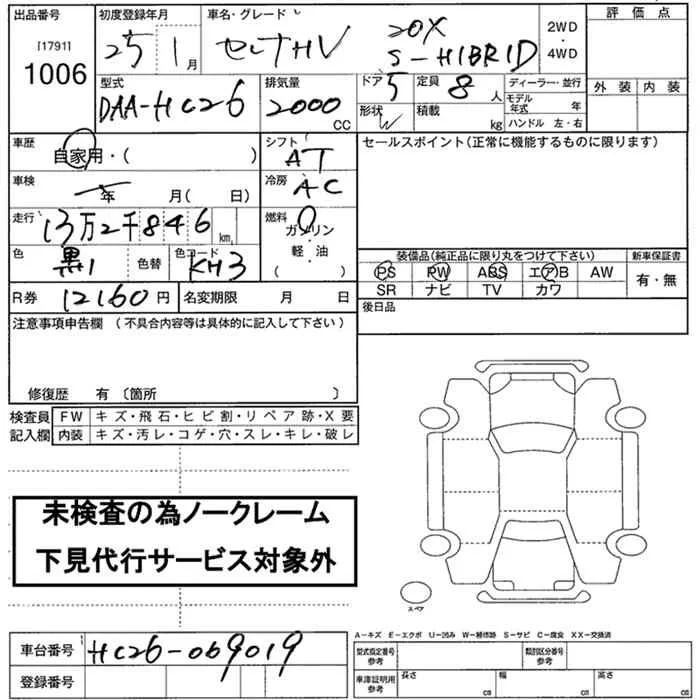 出品番号 初度登録年月 車名・グレード 評価点
[1791] 1006 25年1月 セレナHV 20X S-HIBRID 2WD・4WD
外装 内装
型式 排気量 ドア 5 定員 8人 ディーラー・並行
DAA-HC26 2000CC 形状 W 積載 kg モデル年式 年
ハンドル 左・右
車歴 自家用・( ) シフト AT セールスポイント(正常に機能するものに限ります)
車検 年 月( 日) 冷房 AC
走行 13万2千846km 燃料 ガソリン
軽・油
( )
色 黒1 色替 色コード KH3
装備品(純正品に限り丸をつけて下さい) 新車保証書
PS PW ABS エアB AW 有・無
SR ナビ TV カワ
R券 12160円 名変期限 月 日 後日品
注意事項申告欄 (不具合内容等は具体的に記入して下さい)
修復歴 有 〔箇所 〕
検査員 FW キズ・飛石・ヒビ割・リペア跡・X要
記入欄 内装 キズ・汚レ・コゲ・穴・スレ・キレ・破レ
未検査の為ノークレーム
下見代行サービス対象外
スペア
A-キズ E-エクボ U-凹み W-補修跡 S-サビ C-腐食 XX-交換済
車台番号 HC26-069019 型式指定番号参考 類別区分番号参考
登録番号 車庫証明用参考 長さ cm 幅 cm 高さ cm